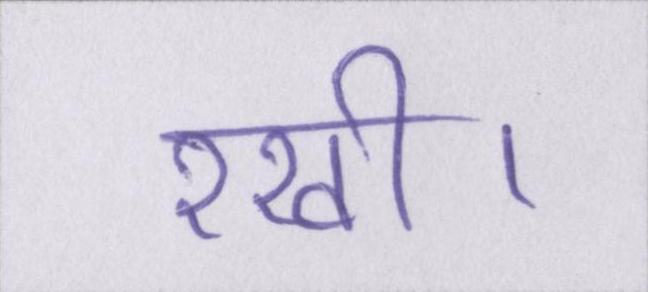 रखी।